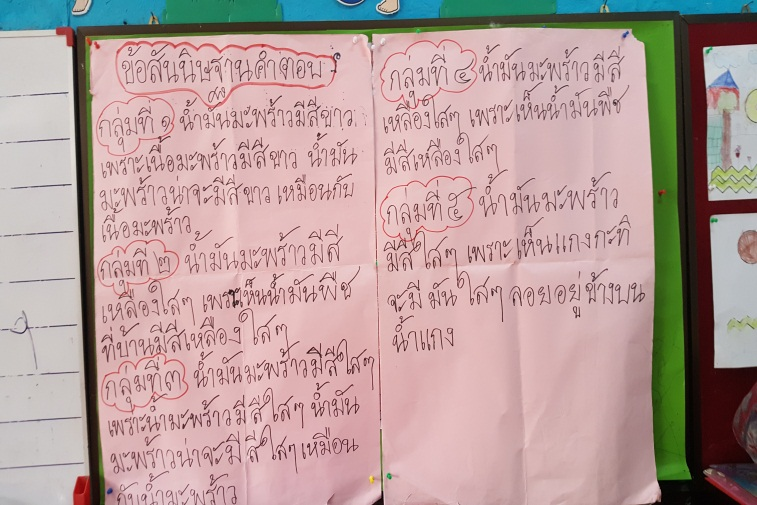 ข้อสันนิษฐานคำตอบ
กลุ่มที่ ๑ น้ำมันมะพร้าวมีสีขาว
เพราะเนื้อมะพร้าวมีสีขาว น้ำมัน
มะพร้าวน่าจะมีสีขาว เหมือนกับ
เนื้อมะพร้าว
กลุ่มที่ ๒ น้ำมันมะพร้าวมีสี
เหลืองใสๆ เพราะเห็นน้ำมันพืช
ที่บ้านมีสีเหลืองใสๆ
กลุ่มที่ ๓ น้ำมันมะพร้าวมีสีใสๆ
เพราะน้ำมะพร้าวมีสีใสๆ น้ำมัน
มะพร้าวน่าจะมีสีใสๆ เหมือน
กับน้ำมะพร้าว
กลุ่มที่ ๔ น้ำมันมะพร้าวมีสี
เหลืองใสๆ เพราะเห็นน้ำมันพืช
มีสีเหลืองใสๆ
กลุ่มที่ ๕ น้ำมันมะพร้าว
มีสีใสๆ เพราะเห็นแกงกะทิ
จะมีมันใสๆ ลอยอยู่ข้างบน
น้ำแกง